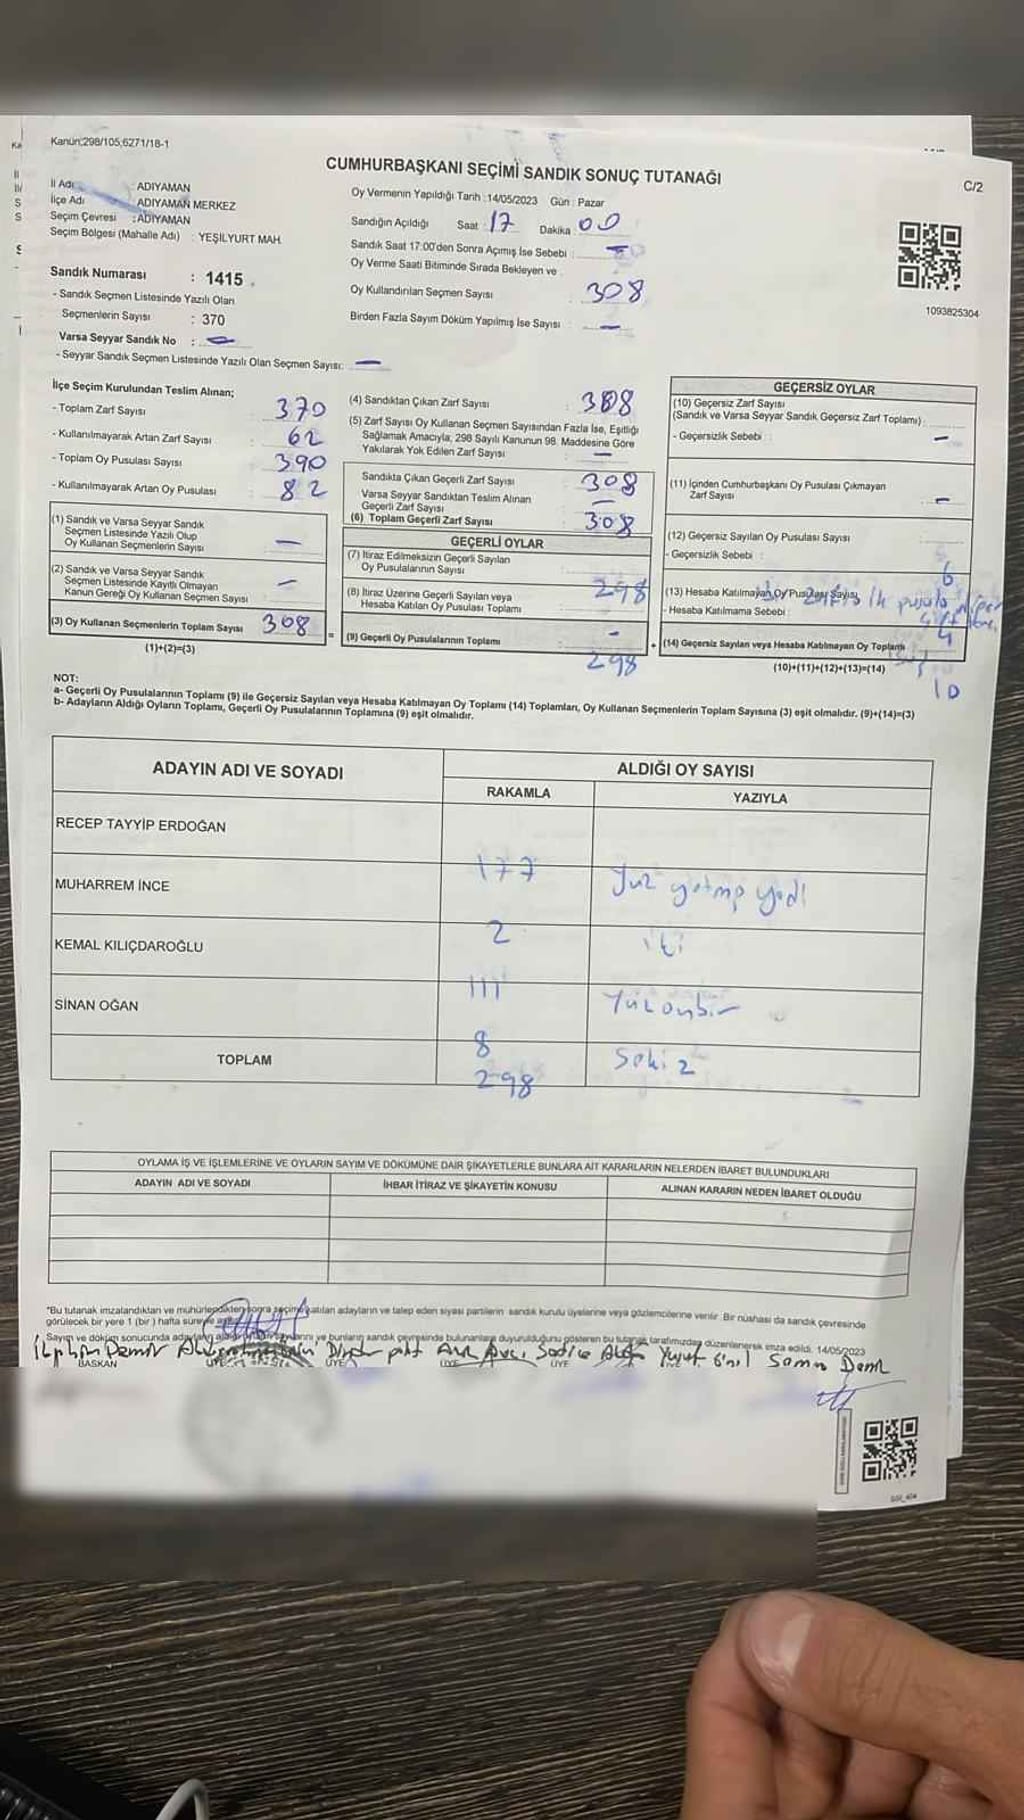 Kanun:298/105;6271/18-1
CUMHURBAŞKANI SEÇİMİ SANDIK SONUÇ TUTANAĞI
C/2
İl Adı : ADIYAMAN
İlçe Adı : ADIYAMAN MERKEZ
Seçim Çevresi : ADIYAMAN
Seçim Bölgesi (Mahalle Adı) : YEŞİLYURT MAH.
Oy Vermenin Yapıldığı Tarih :14/05/2023 Gün : Pazar
Sandığın Açıldığı Saat 17 Dakika 00
Sandık Saat 17:00'den Sonra Açımış İse Sebebi :
Oy Verme Saati Bitiminde Sırada Bekleyen ve
Oy Kullandırılan Seçmen Sayısı : 308
Birden Fazla Sayım Döküm Yapılmış İse Sayısı : —
1093825304
Sandık Numarası : 1415
- Sandık Seçmen Listesinde Yazılı Olan
Seçmenlerin Sayısı : 370
Varsa Seyyar Sandık No : —
- Seyyar Sandık Seçmen Listesinde Yazılı Olan Seçmen Sayısı: —
İlçe Seçim Kurulundan Teslim Alınan;
- Toplam Zarf Sayısı : 370
- Kullanılmayarak Artan Zarf Sayısı : 62
- Toplam Oy Pusulası Sayısı : 390
- Kullanılmayarak Artan Oy Pusulası : 82
(1) Sandık ve Varsa Seyyar Sandık
Seçmen Listesinde Yazılı Olup
Oy Kullanan Seçmenlerin Sayısı : —
(2) Sandık ve Varsa Seyyar Sandık
Seçmen Listesinde Kayıtlı Olmayan
Kanun Gereği Oy Kullanan Seçmen Sayısı : —
(3) Oy Kullanan Seçmenlerin Toplam Sayısı 308
(1)+(2)=(3)
(4) Sandıktan Çıkan Zarf Sayısı : 308
(5) Zarf Sayısı Oy Kullanan Seçmen Sayısından Fazla İse, Eşitliği
Sağlamak Amacıyla, 298 Sayılı Kanunun 98. Maddesine Göre
Yakılarak Yok Edilen Zarf Sayısı : —
Sandıkta Çıkan Geçerli Zarf Sayısı : 308
Varsa Seyyar Sandıktan Teslim Alınan
Geçerli Zarf Sayısı : —
(6) Toplam Geçerli Zarf Sayısı : 308
GEÇERLİ OYLAR
(7) İtiraz Edilmeksizin Geçerli Sayılan
Oy Pusulalarının Sayısı
298
(8) İtiraz Üzerine Geçerli Sayılan veya
Hesaba Katılan Oy Pusulası Toplamı
-
(9) Geçerli Oy Pusulalarının Toplamı
298
GEÇERSİZ OYLAR
(10) Geçersiz Zarf Sayısı
(Sandık ve Varsa Seyyar Sandık Geçersiz Zarf Toplamı)
- Geçersizlik Sebebi : —
(11) İçinden Cumhurbaşkanı Oy Pusulası Çıkmayan
Zarf Sayısı —
(12) Geçersiz Sayılan Oy Pusulası Sayısı
- Geçersizlik Sebebi :
6
(13) Hesaba Katılmayan Oy Pusulası Sayısı
- Hesaba Katılmama Sebebi :
4
(14) Geçersiz Sayılan veya Hesaba Katılmayan Oy Toplamı
(10)+(11)+(12)+(13)=(14)
10
NOT:
a- Geçerli Oy Pusulalarının Toplamı (9) ile Geçersiz Sayılan veya Hesaba Katılmayan Oy Toplamı (14) Toplamları, Oy Kullanan Seçmenlerin Toplam Sayısına (3) eşit olmalıdır. (9)+(14)=(3)
b- Adayların Aldığı Oyların Toplamı, Geçerli Oy Pusulalarının Toplamına (9) eşit olmalıdır.
ADAYIN ADI VE SOYADI
ALDIĞI OY SAYISI
RAKAMLA YAZIYLA
RECEP TAYYİP ERDOĞAN
177 Yüz yetmiş yedi
MUHARREM İNCE
2 iki
KEMAL KILIÇDAROĞLU
111 Yüz onbir
SİNAN OĞAN
8 Sekiz
TOPLAM
298
OYLAMA İŞ VE İŞLEMLERİNE VE OYLARIN SAYIM VE DÖKÜMÜNE DAİR ŞİKAYETLERLE BUNLARA AİT KARARLARIN NELERDEN İBARET BULUNDUKLARI
ADAYIN ADI VE SOYADI İHBAR İTİRAZ VE ŞİKAYETİN KONUSU ALINAN KARARIN NEDEN İBARET OLDUĞU
*Bu tutanak imzalandıktan ve mühürlendikten sonra seçime katılan adayların ve talep eden siyasi partilerin sandık kurulu üyelerine veya gözlemcilerine verilir. Bir nüshası da sandık çevresinde
görülecek bir yere 1 (bir) hafta süreyle asılır.
Sayım ve döküm sonucunda adayların aldığı oy sayılarını ve bunların sandık çevresinde bulunanlara duyurulduğunu gösteren bu tutanak tarafımızdan düzenlenerek imza edildi. 14/05/2023
BAŞKAN ÜYE ÜYE ÜYE ÜYE